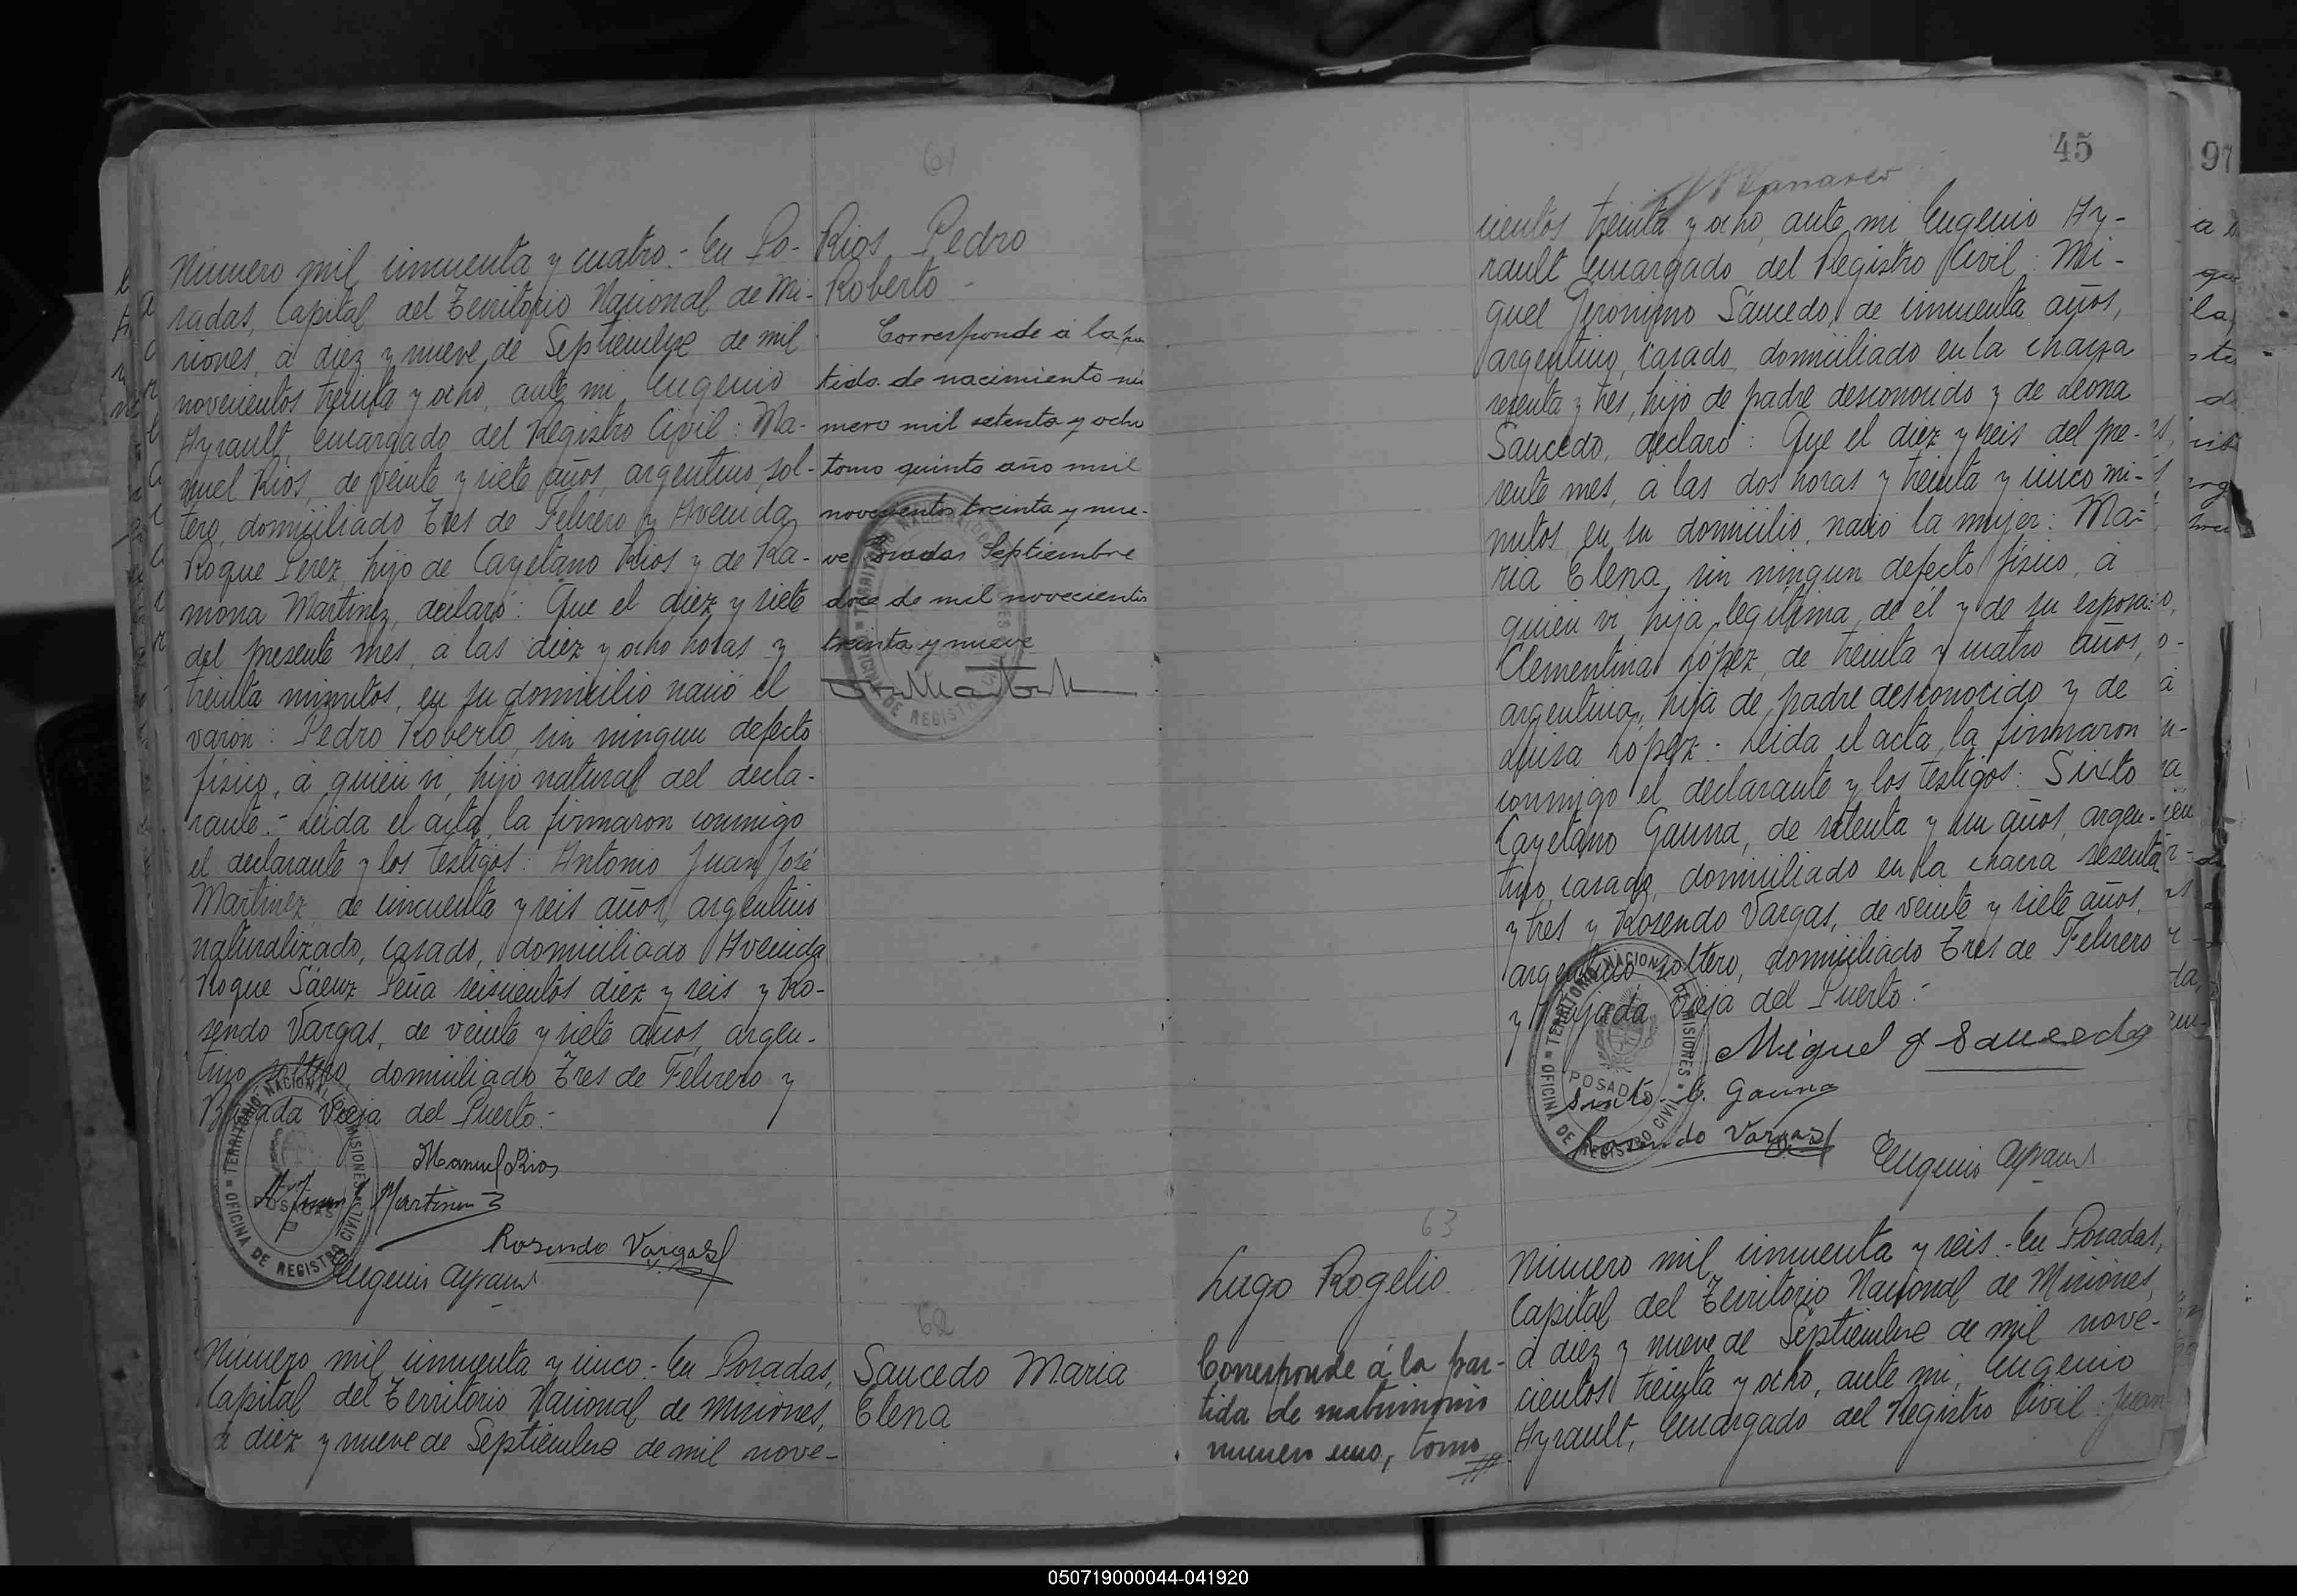 61
Número mil cincuenta y cuatro.- En Po-
sadas, Capital del Territorio Nacional de Mi-
siones, á diez y nueve de Septiembre de mil
novecientos treinta y ocho, ante mi, Eugenio
Ayrault, Encargado del Registro Civil: Ma-
nuel Rios, de veinte y siete años, argentino, sol-
tero, domiciliado Tres de Febrero y Avenida
Roque Perez, hijo de Cayetano Rios y de Ra-
mona Martinez, declaró: Que el diez y siete
del presente mes, á las diez y ocho horas y
treinta minutos, en su domicilio nació el
varon: Pedro Roberto, sin ningun defecto
físico, á quien vi, hijo natural del decla-
rante.- Leida el acta, la firmaron conmigo
el declarante y los testigos: Antonio Juan José
Martinez, de cincuenta y seis años, argentino
naturalizado, casado, domiciliado Avenida
Roque Sáenz Peña seiscientos diez y seis y Ro-
sendo Vargas, de veinte y siete años, argen-
tino, soltero, domiciliado Tres de Febrero y
Bajada Vieja del Puerto.-
Manuel Rios
Martinez
Rosendo Vargas
Eugenio Ayrault
TERRITORIO NACIONAL DE MISIONES
POSADAS
OFICINA DE REGISTRO CIVIL
Rios Pedro
Roberto -
Corresponde á la par
tida de nacimiento nú
mero mil setenta y ocho
tomo quinto año mil
novecientos treinta y nue-
ve Posadas Septiembre
doce de mil novecientos
treinta y nueve
62
Número mil cincuenta y cinco.- En Posadas,
Capital del Territorio Nacional de Misiones,
á diez y nueve de Septiembre de mil nove-
Saucedo Maria
Elena
45
97
cientos treinta y ocho, ante mi Eugenio Ay-
rault Encargado del Registro Civil: Mi-
guel Geronimo Saucedo, de cincuenta años,
argentino, casado, domiciliado en la chacra
sesenta y tres, hijo de padre desconocido y de Leona
Saucedo, declaró: Que el diez y seis del pre-
sente mes, á las dos horas y treinta y cinco mi-
nutos, en su domicilio, nació la mujer: Ma-
ria Elena, sin ningun defecto físico, á
quien vi, hija legítima de él y de su esposa:
Clementina López, de treinta y cuatro años,
argentina, hija de padre desconocido y de
Luisa López.- Leida el acta, la firmaron
conmigo el declarante y los testigos: Sixto
Cayetano Gauna, de setenta y un años, argen-
tino, casado, domiciliado en la chacra sesenta
y tres y Rosendo Vargas, de veinte y siete años,
argentino, soltero, domiciliado Tres de Febrero
y Bajada Vieja del Puerto.-
Miguel G Saucedo
Sixto C. Gauna
Rosendo Vargas
Eugenio Ayrault
TERRITORIO NACIONAL DE MISIONES
POSADAS
OFICINA DE REGISTRO CIVIL
63
Lugo Rogelio
Corresponde á la par-
tida de matrimonio
numero uno, tomo
Número mil cincuenta y seis.- En Posadas,
Capital del Territorio Nacional de Misiones,
á diez y nueve de Septiembre de mil nove-
cientos treinta y ocho, ante mi, Eugenio
Ayrault, Encargado del Registro Civil: Juan
050719000044-041920